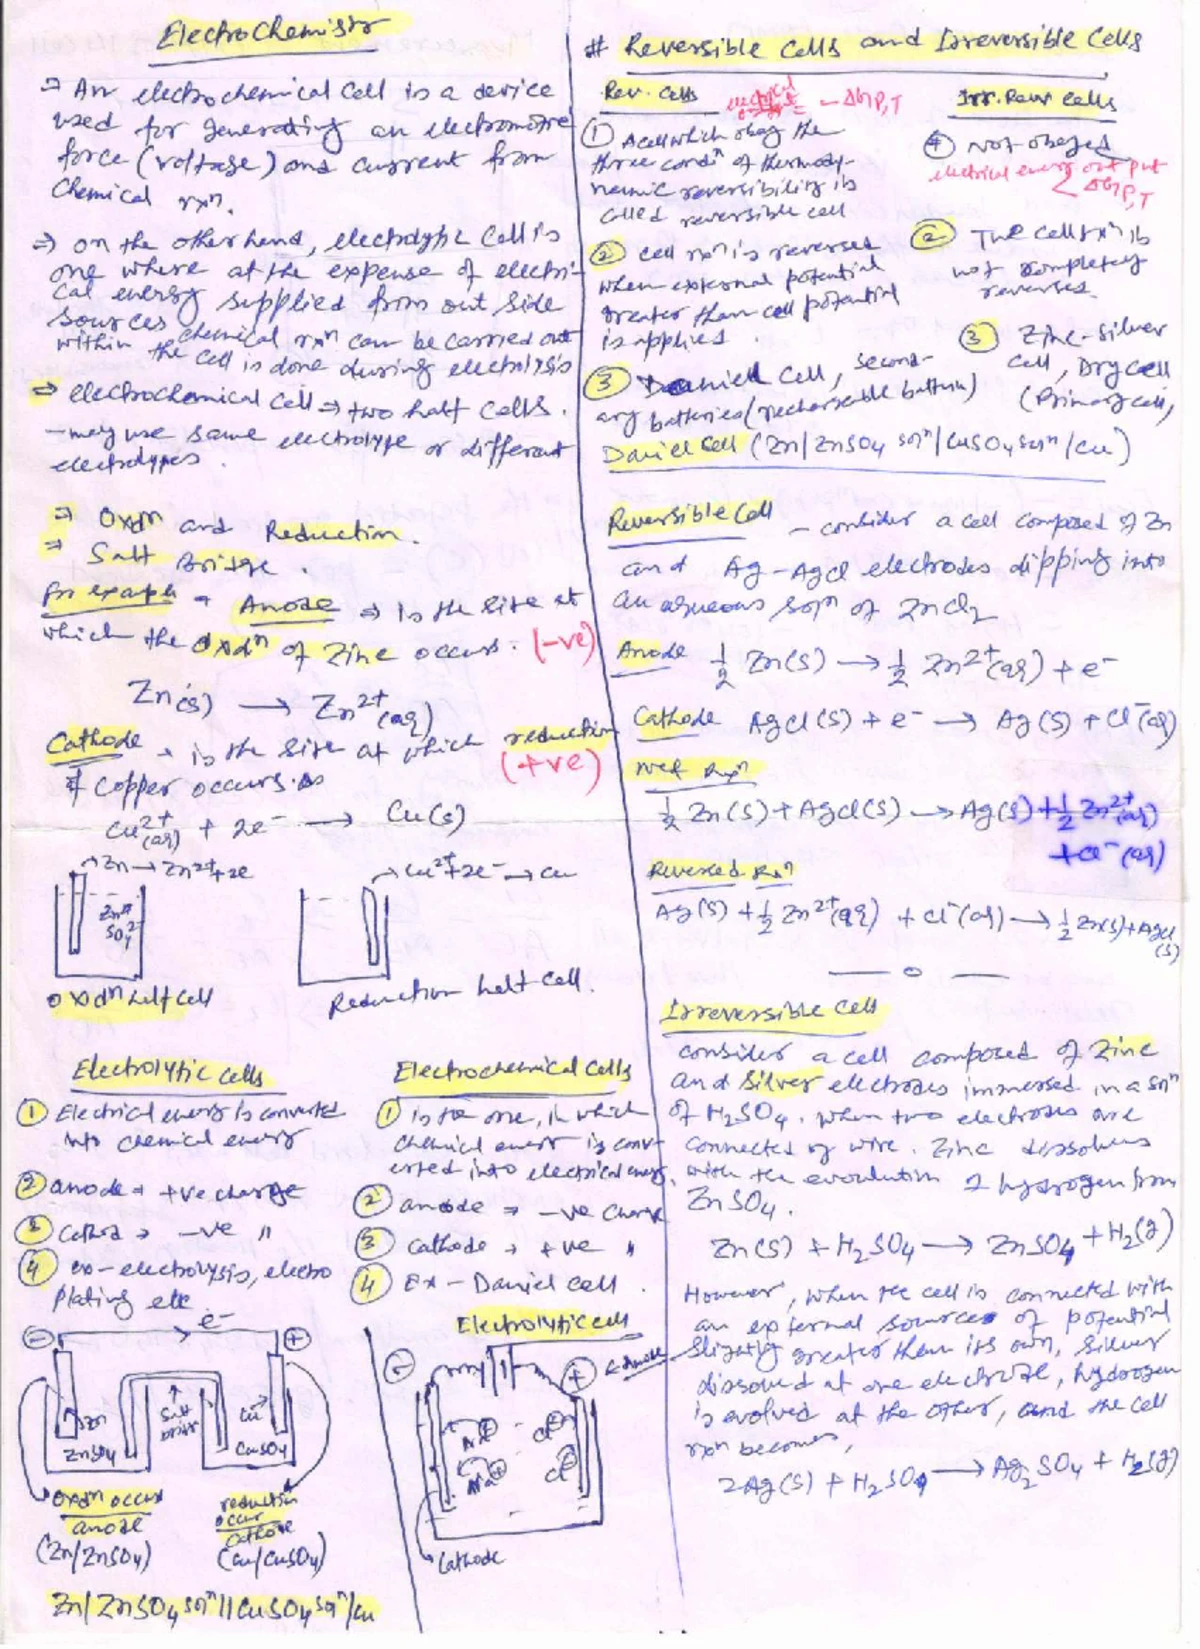 Electrochemistr
⇒ An electrochemical cell is a device
used for generating an electromotive
force (voltage) and current from
chemical rxⁿ.
⇒ on the other hand, electrolytic cell is
one where at the expense of electri-
cal energy supplied from out side
sources chemical rxⁿ can be carried out
within the cell is done during electrolysis
⇒ electrochemical cell ⇒ two half cells.
- may use same electrolype or different
electrolypes.
⇒ Oxdⁿ and Reduction.
⇒ Salt Bridge.
for exaple → Anode ⇒ is the site at
which the Oxdⁿ of Zinc occurs. (-ve)
Zn(s) → Zn²⁺(aq)
Cathode → is the site at which reduction
of Copper occurs. (+ve)
Cu²⁺(aq) + 2e⁻ → Cu(s)
Zn → Zn²⁺+2e
Zn²⁺ SO₄²⁻
oxdⁿ half cell
Cu²⁺+2e⁻ → Cu
Reduction half cell.
Electrolytic cells
① Electrical energy is converted
into chemical energy
② anode → +ve charge
③ Cathod → -ve "
④ ex-electrolysis, electro
plating etc.
Electrochemical cells
① is the one, in which
chemical energy is conv-
erted into electrical energy.
② anode → -ve charge
③ Cathode → +ve "
④ Ex - Daniel cell.
e⁻
- +
Zn
ZnSO₄
Salt
bridge
Cu
CuSO₄
oxdⁿ occur
anode
(Zn/ZnSO₄)
reduction
occur
cathode
(Cu/CuSO₄)
Zn/ZnSO₄ solⁿ//CuSO₄ solⁿ/Cu
Electrolytic cell
- +
Anode
Na+ Cl-
Na+ Cl-
Cathode
# Reversible Cells and Irreversible Cells
Rev. cells
electrical
= -ΔG P,T
① A cell which obey the
three condⁿ of thermody-
namic reversibility is
called reversible cell
② cell rxⁿ is reversed
when external potential
greater than cell potential
is applied.
③ Daniell cell, second-
ary batteries (rechargeable battries)
Irr. Rever cells
① Not obeyed
electrical energy out put
< ΔG P,T
② The cell rxⁿ is
not completely
reverses.
③ Zinc-silver
cell, Dry cell
(Primary cell)
Daniel cell (Zn/ZnSO₄ solⁿ/CuSO₄ solⁿ/Cu)
Reversible Cell - consider a cell composed of Zn
and Ag-AgCl electrodes dipping into
an aqueous solⁿ of ZnCl₂
Anode ½ Zn(s) → ½ Zn²⁺(aq) + e⁻
Cathode AgCl(s) + e⁻ → Ag(s) + Cl⁻(aq)
Net Rxⁿ
½ Zn(s) + AgCl(s) → Ag(s) + ½ Zn²⁺(aq)
+ Cl⁻(aq)
Reversed Rxⁿ
Ag(s) + ½ Zn²⁺(aq) + Cl⁻(aq) → ½ Zn(s) + AgCl(s)
Irreversible Cell
consider a cell composed of Zinc
and Silver electrodes immersed in a solⁿ
of H₂SO₄. When two electrodes are
connected by wire. Zinc dissolves
with the evolution of hydrogen from
ZnSO₄.
Zn(s) + H₂SO₄ → ZnSO₄ + H₂(g)
However, when the cell is connected with
an external sources of potential
slightly greater than its own, silver
dissolved at one electrode, hydrogen
is evolved at the other, and the cell
rxⁿ becomes,
2Ag(s) + H₂SO₄ → Ag₂SO₄ + H₂(g)